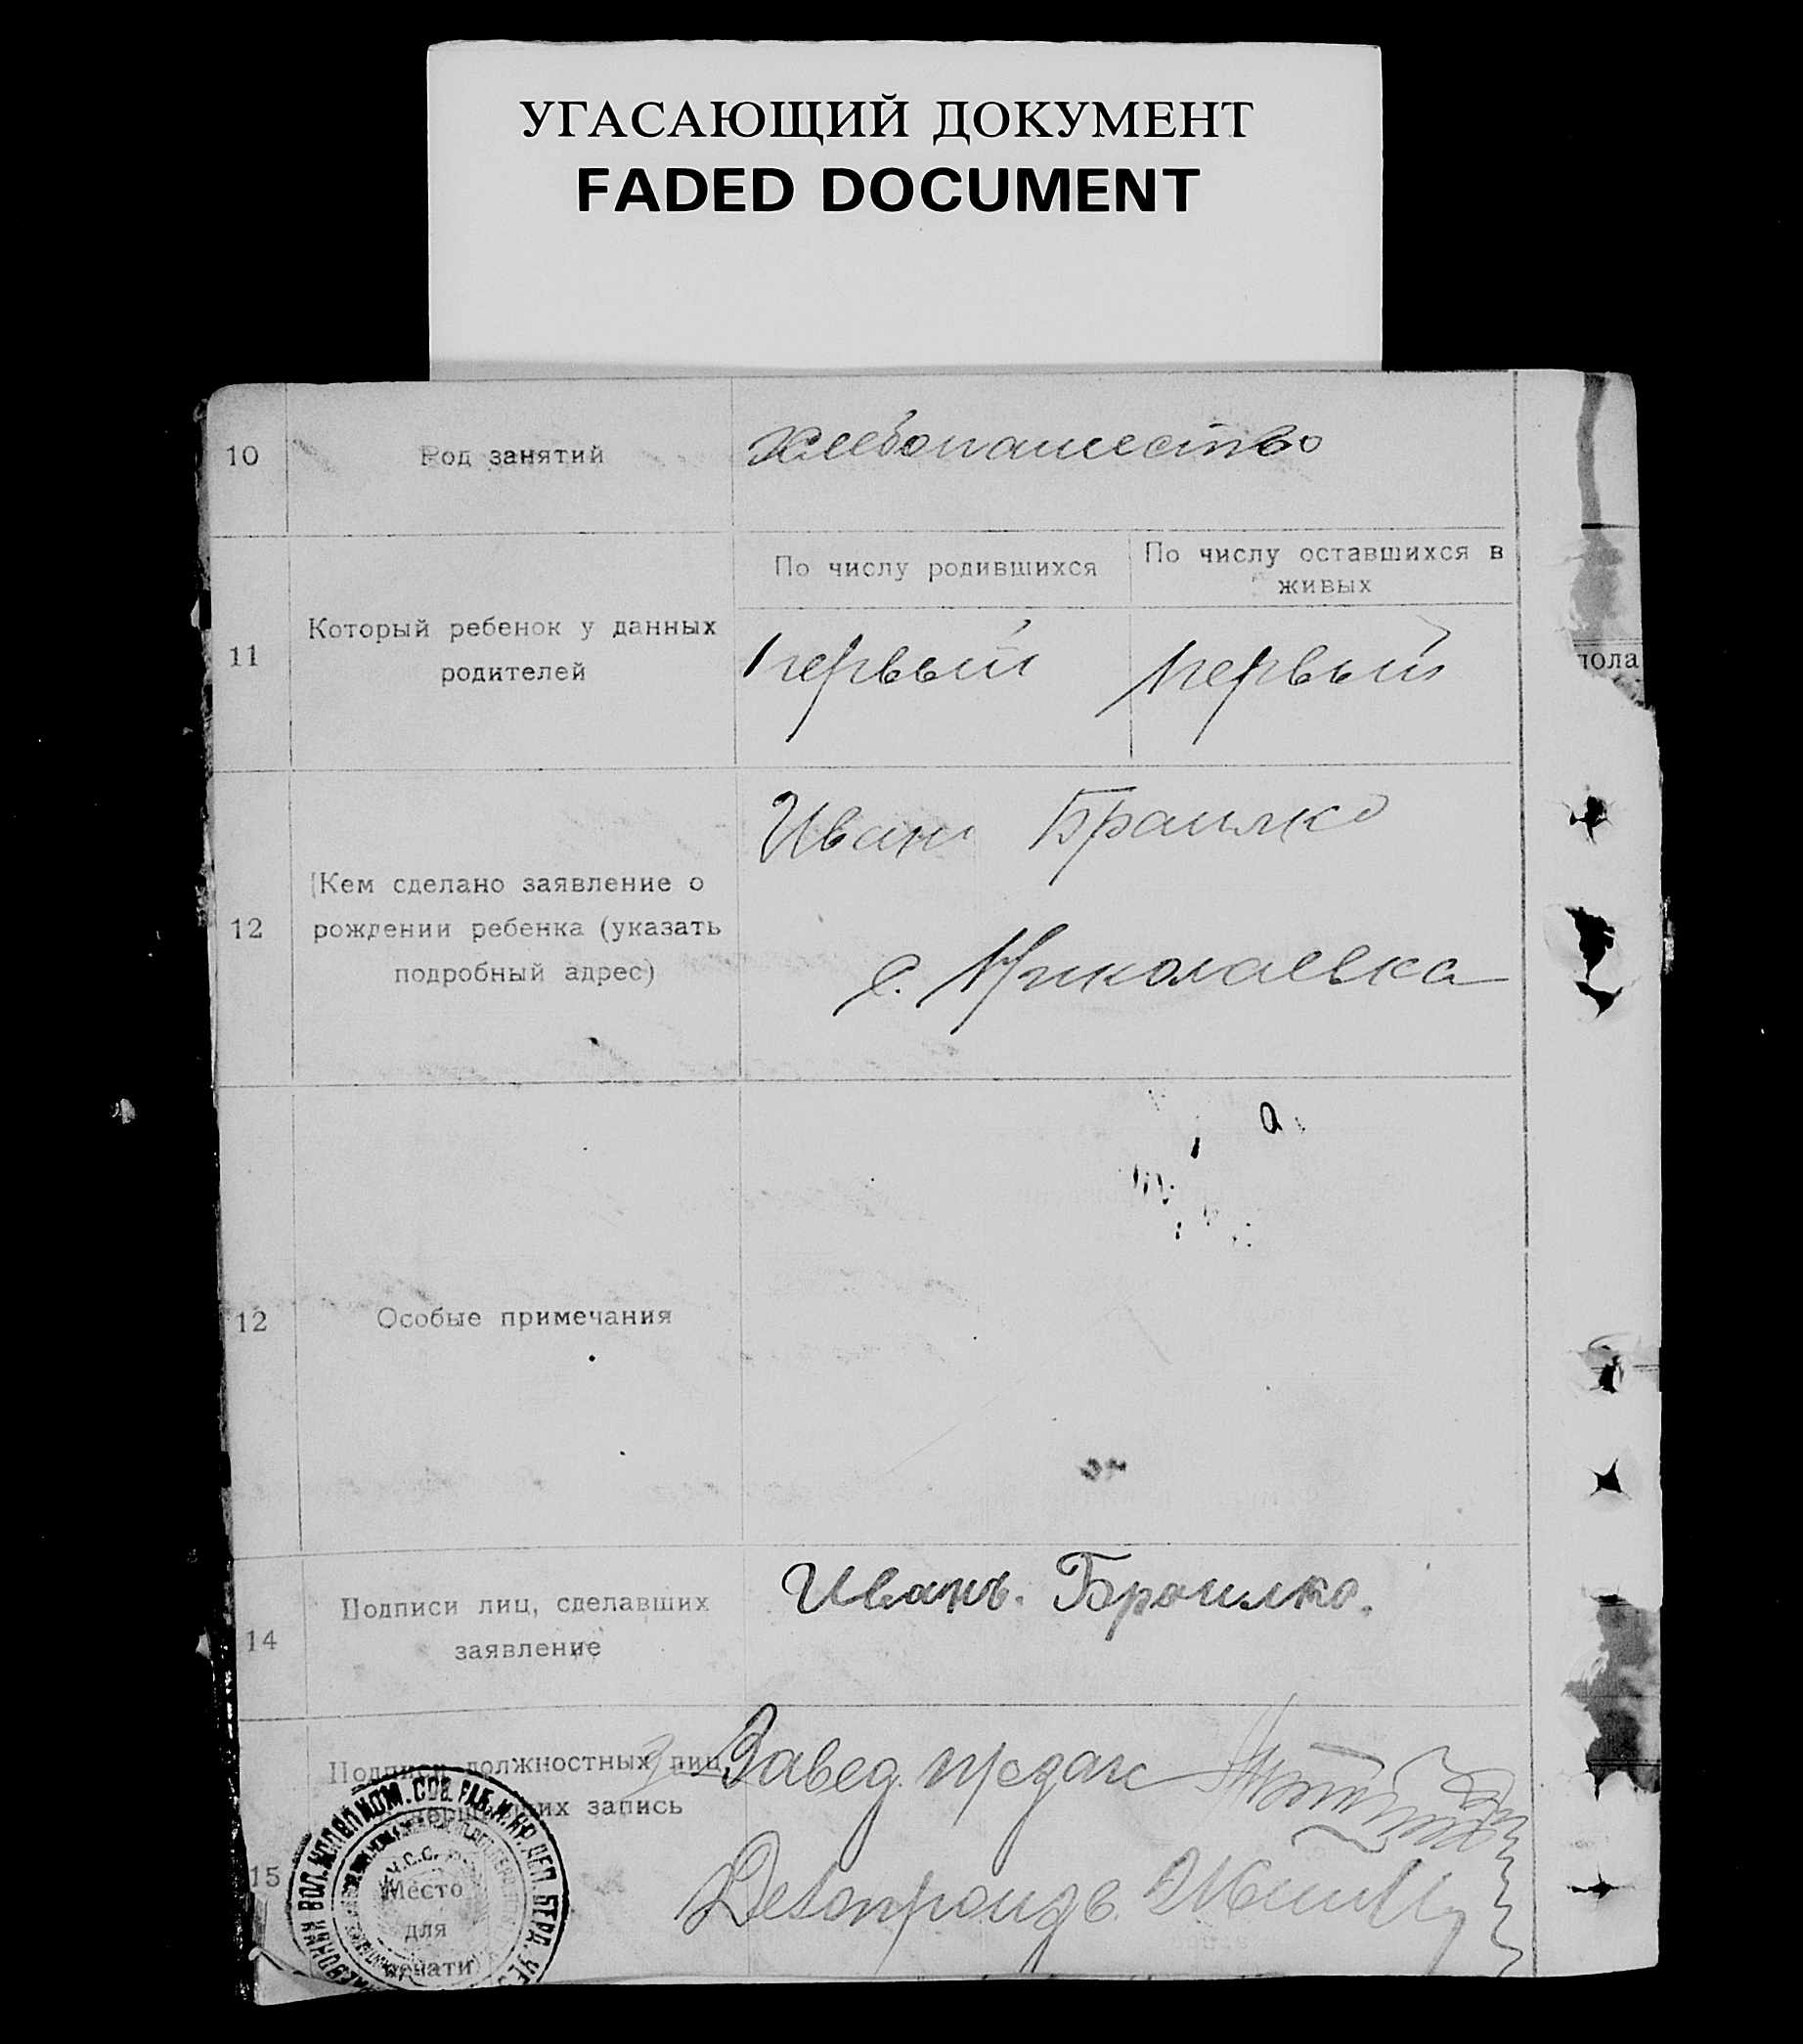 УГАСАЮЩИЙ ДОКУМЕНТ
FADED DOCUMENT
10 Род занятий хлебопашество
По числу родившихся По числу оставшихся в
живых
11 Который ребенок у данных
родителей
первый первый
пола
Иван Браилко
12 (Кем сделано заявление о
рождении ребенка (указать
подробный адрес)
с. Николаевка
12 Особые примечания
14 Подписи лиц, сделавших
заявление
Иванъ. Браилко.
Подписи должностных лиц,
запись
Завед.
Делопроизв.
15
ВОЛ. ИСПОЛКОМ. СОВ. РАБ. И КР. ДЕП. БЕРД.
Место
для
печати